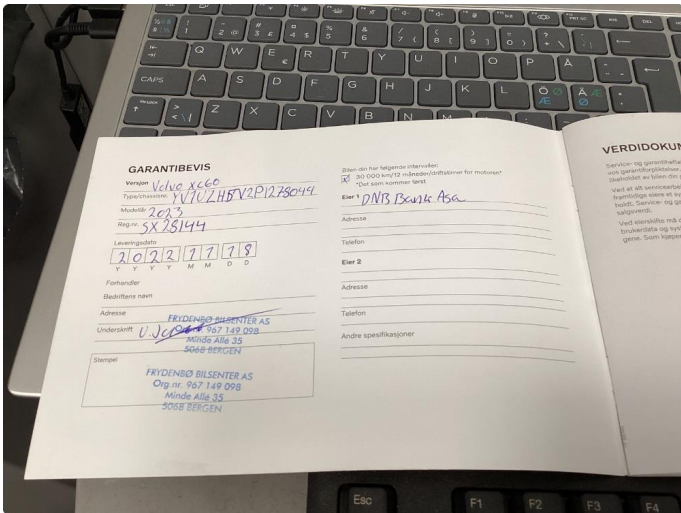 GARANTIBEVIS
Versjon Volvo XC60
Type/chassisnr. YV1UZH5TV2P1278044
Modellår 2023
Reg.nr. SX 28144
Leveringsdato
2 0 2 2 1 1 1 8
Y Y Y Y M M D D
Forhandler
Bedriftens navn
Adresse
Underskrift
FRYDENBØ BILSENTER AS
Org.nr. 967 149 098
Minde Allé 35
5068 BERGEN
Stempel
FRYDENBØ BILSENTER AS
Org.nr. 967 149 098
Minde Allé 35
5068 BERGEN
Bilen din har følgende intervaller:
30 000 km/12 måneder/driftstimer for motoren*
*Det som kommer først
Eier 1 DNB Bank Asa
Adresse
Telefon
Eier 2
Adresse
Telefon
Andre spesifikasjoner
VERDIDOKUM
Service- og garantihefte
Ved et alt servicearbei
framtidige eiere et sy
holdt. Service- og ga
salgsverdi.
Ved eierskifte må d
brukerdata og sys
gene. Som kjøper
CAPS
Q W E R T Y U I O P Å
A S D F G H J K L
Z X C V B N
Esc F1 F2 F3 F4